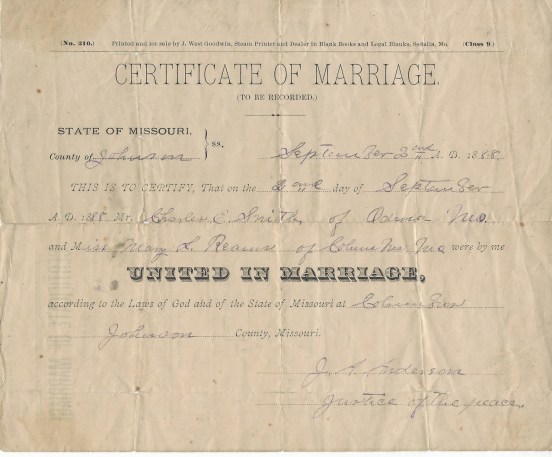 (No. 210.) Printed and for sale by J. West Goodwin, Steam Printer and Dealer in Blank Books and Legal Blanks, Sedalia, Mo. (Class 9.)
CERTIFICATE OF MARRIAGE.
(TO BE RECORDED.)
STATE OF MISSOURI,
County of Johnson } ss. September 2nd A. D. 1888
THIS IS TO CERTIFY, That on the 2nd day of September
A. D. 188 Mr. Charles E. Smith of Mo
and Miss Mary L. of were by me
UNITED IN MARRIAGE,
according to the Laws of God and of the State of Missouri at Columbus
Johnson County, Missouri.
Anderson
Justice of the peace.